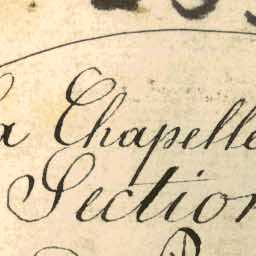 La Chapelle
Section